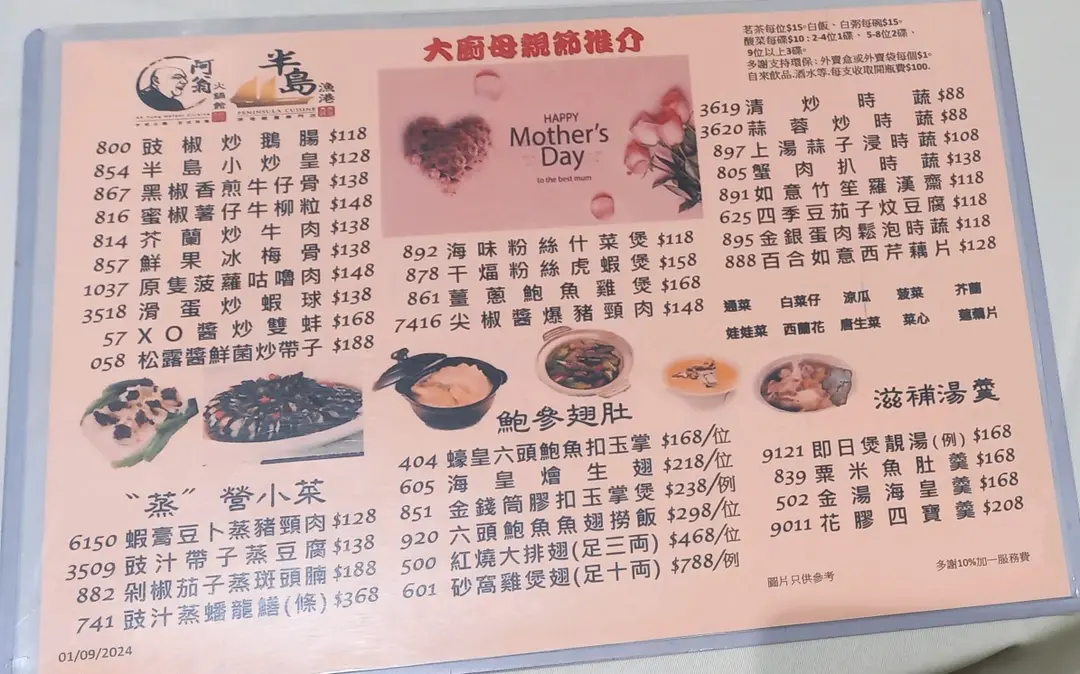 大廚母親節推介
阿翁
火鍋館
半島
漁港
PENINSULA CUISINE
茗茶每位$15。白飯、白粥每碗$15。
酸菜每碟$10：2-4位1碟、5-8位2碟、
9位以上3碟。
多謝支持環保；外賣盒或外賣袋每個$1。
自來飲品.酒水等.每支收取開瓶費$100.
800 豉椒炒鵝腸 $118
854 半島小炒皇 $128
867 黑椒香煎牛仔骨 $138
816 蜜椒薯仔牛柳粒 $148
814 芥蘭炒牛肉 $138
857 鮮果冰梅骨 $138
1037 原隻菠蘿咕嚕肉 $148
3518 滑蛋炒蝦球 $138
57 XO醬炒雙蚌 $168
058 松露醬鮮菌炒帶子 $188
HAPPY
Mother's
Day
to the best mum
892 海味粉絲什菜煲 $118
878 干煏粉絲虎蝦煲 $158
861 薑蔥鮑魚雞煲 $168
7416 尖椒醬爆豬頸肉 $148
3619 清炒時蔬 $88
3620 蒜蓉炒時蔬 $88
897 上湯蒜子浸時蔬 $108
805 蟹肉扒時蔬 $138
891 如意竹笙羅漢齋 $118
625 四季豆茄子炆豆腐 $118
895 金銀蛋肉鬆泡時蔬 $118
888 百合如意西芹藕片 $128
通菜 白菜仔 涼瓜 菠菜 芥蘭
娃娃菜 西蘭花 唐生菜 菜心 蓮藕片
“蒸”營小菜
6150 蝦膏豆卜蒸豬頸肉 $128
3509 豉汁帶子蒸豆腐 $138
882 剁椒茄子蒸斑頭腩 $188
741 豉汁蒸蟠龍鱔(條) $368
鮑參翅肚
404 蠔皇六頭鮑魚扣玉掌 $168/位
605 海皇燴生翅 $218/位
851 金錢筒膠扣玉掌煲 $238/例
920 六頭鮑魚魚翅撈飯 $298/位
500 紅燒大排翅(足三両) $468/位
601 砂窩雞煲翅(足十両) $788/例
滋補湯羹
9121 即日煲靚湯(例) $168
839 粟米魚肚羹 $168
502 金湯海皇羹 $168
9011 花膠四寶羹 $208
圖片只供參考
多謝10%加一服務費
01/09/2024